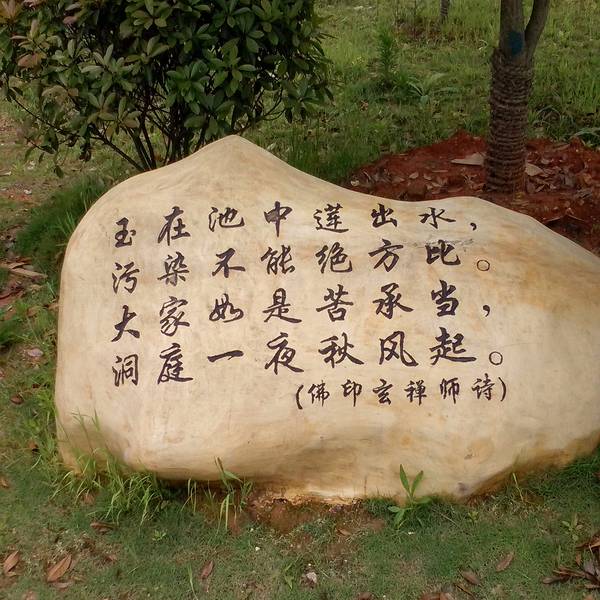 玉在池中莲出水，
污染不能绝方比。
大家如是苦承当，
洞庭一夜秋风起。
(佛印玄禅师诗)